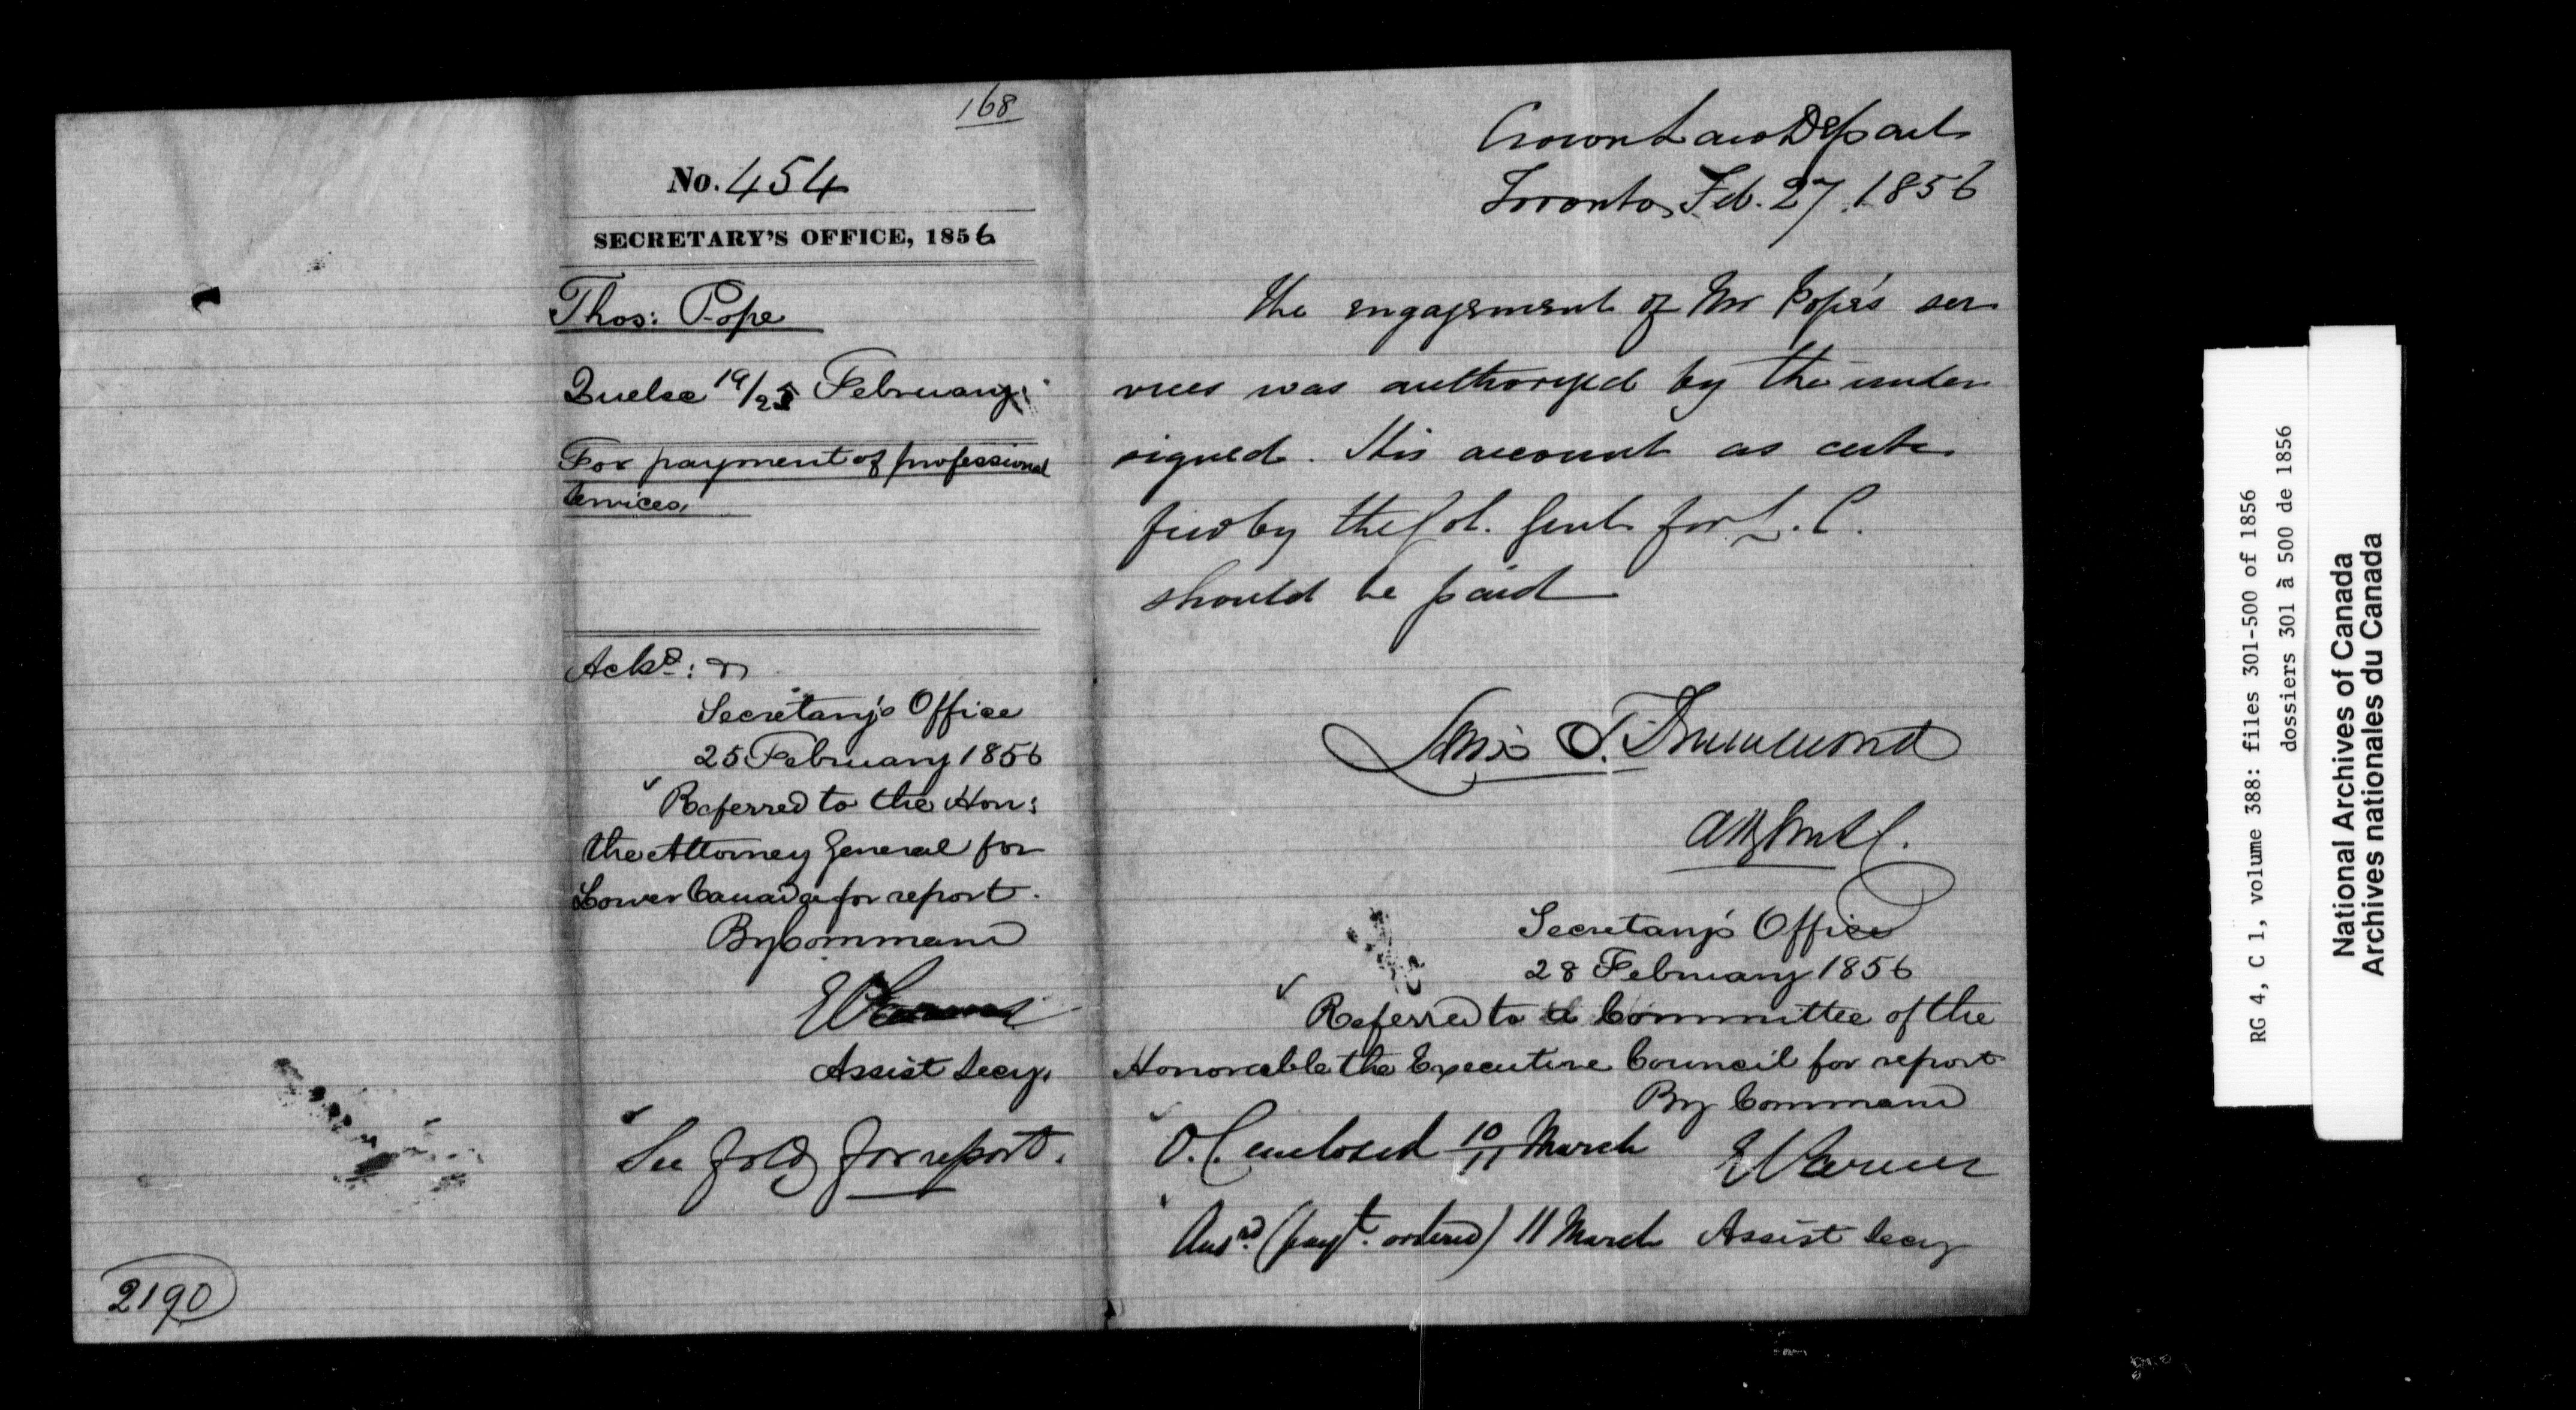 168
No. 454
SECRETARY'S OFFICE, 1856
Thos: Pope
Quebec 19/25 February
For payment of professional
Services,
Ackd:
Secretary's Office
25 February 1856
Referred to the Hon:
the Attorney General for
Lower Canada for report.
By Command
E Parent
Assist Secy.
See fold for report.
2190
Crown Law Depart
Toronto, Feb. 27. 1856
The engagement of Mr Pope's ser
vices was authorized by the under
signed. His account as certi
fied by the Sol. Genl. for L. C.
should be paid
Lewis T. Drummond
Atty Genl L C.
Secretary's Office
28 February 1856
Referred to a Committee of the
Honorable the Executive Council for report
By Command
O. C. enclosed 10/11 March
E Parent
Ansd. (payt. ordered) 11 March Assist Secy
RG 4, C 1, volume 388: files 301-500 of 1856
dossiers 301 à 500 de 1856
National Archives of Canada
Archives nationales du Canada